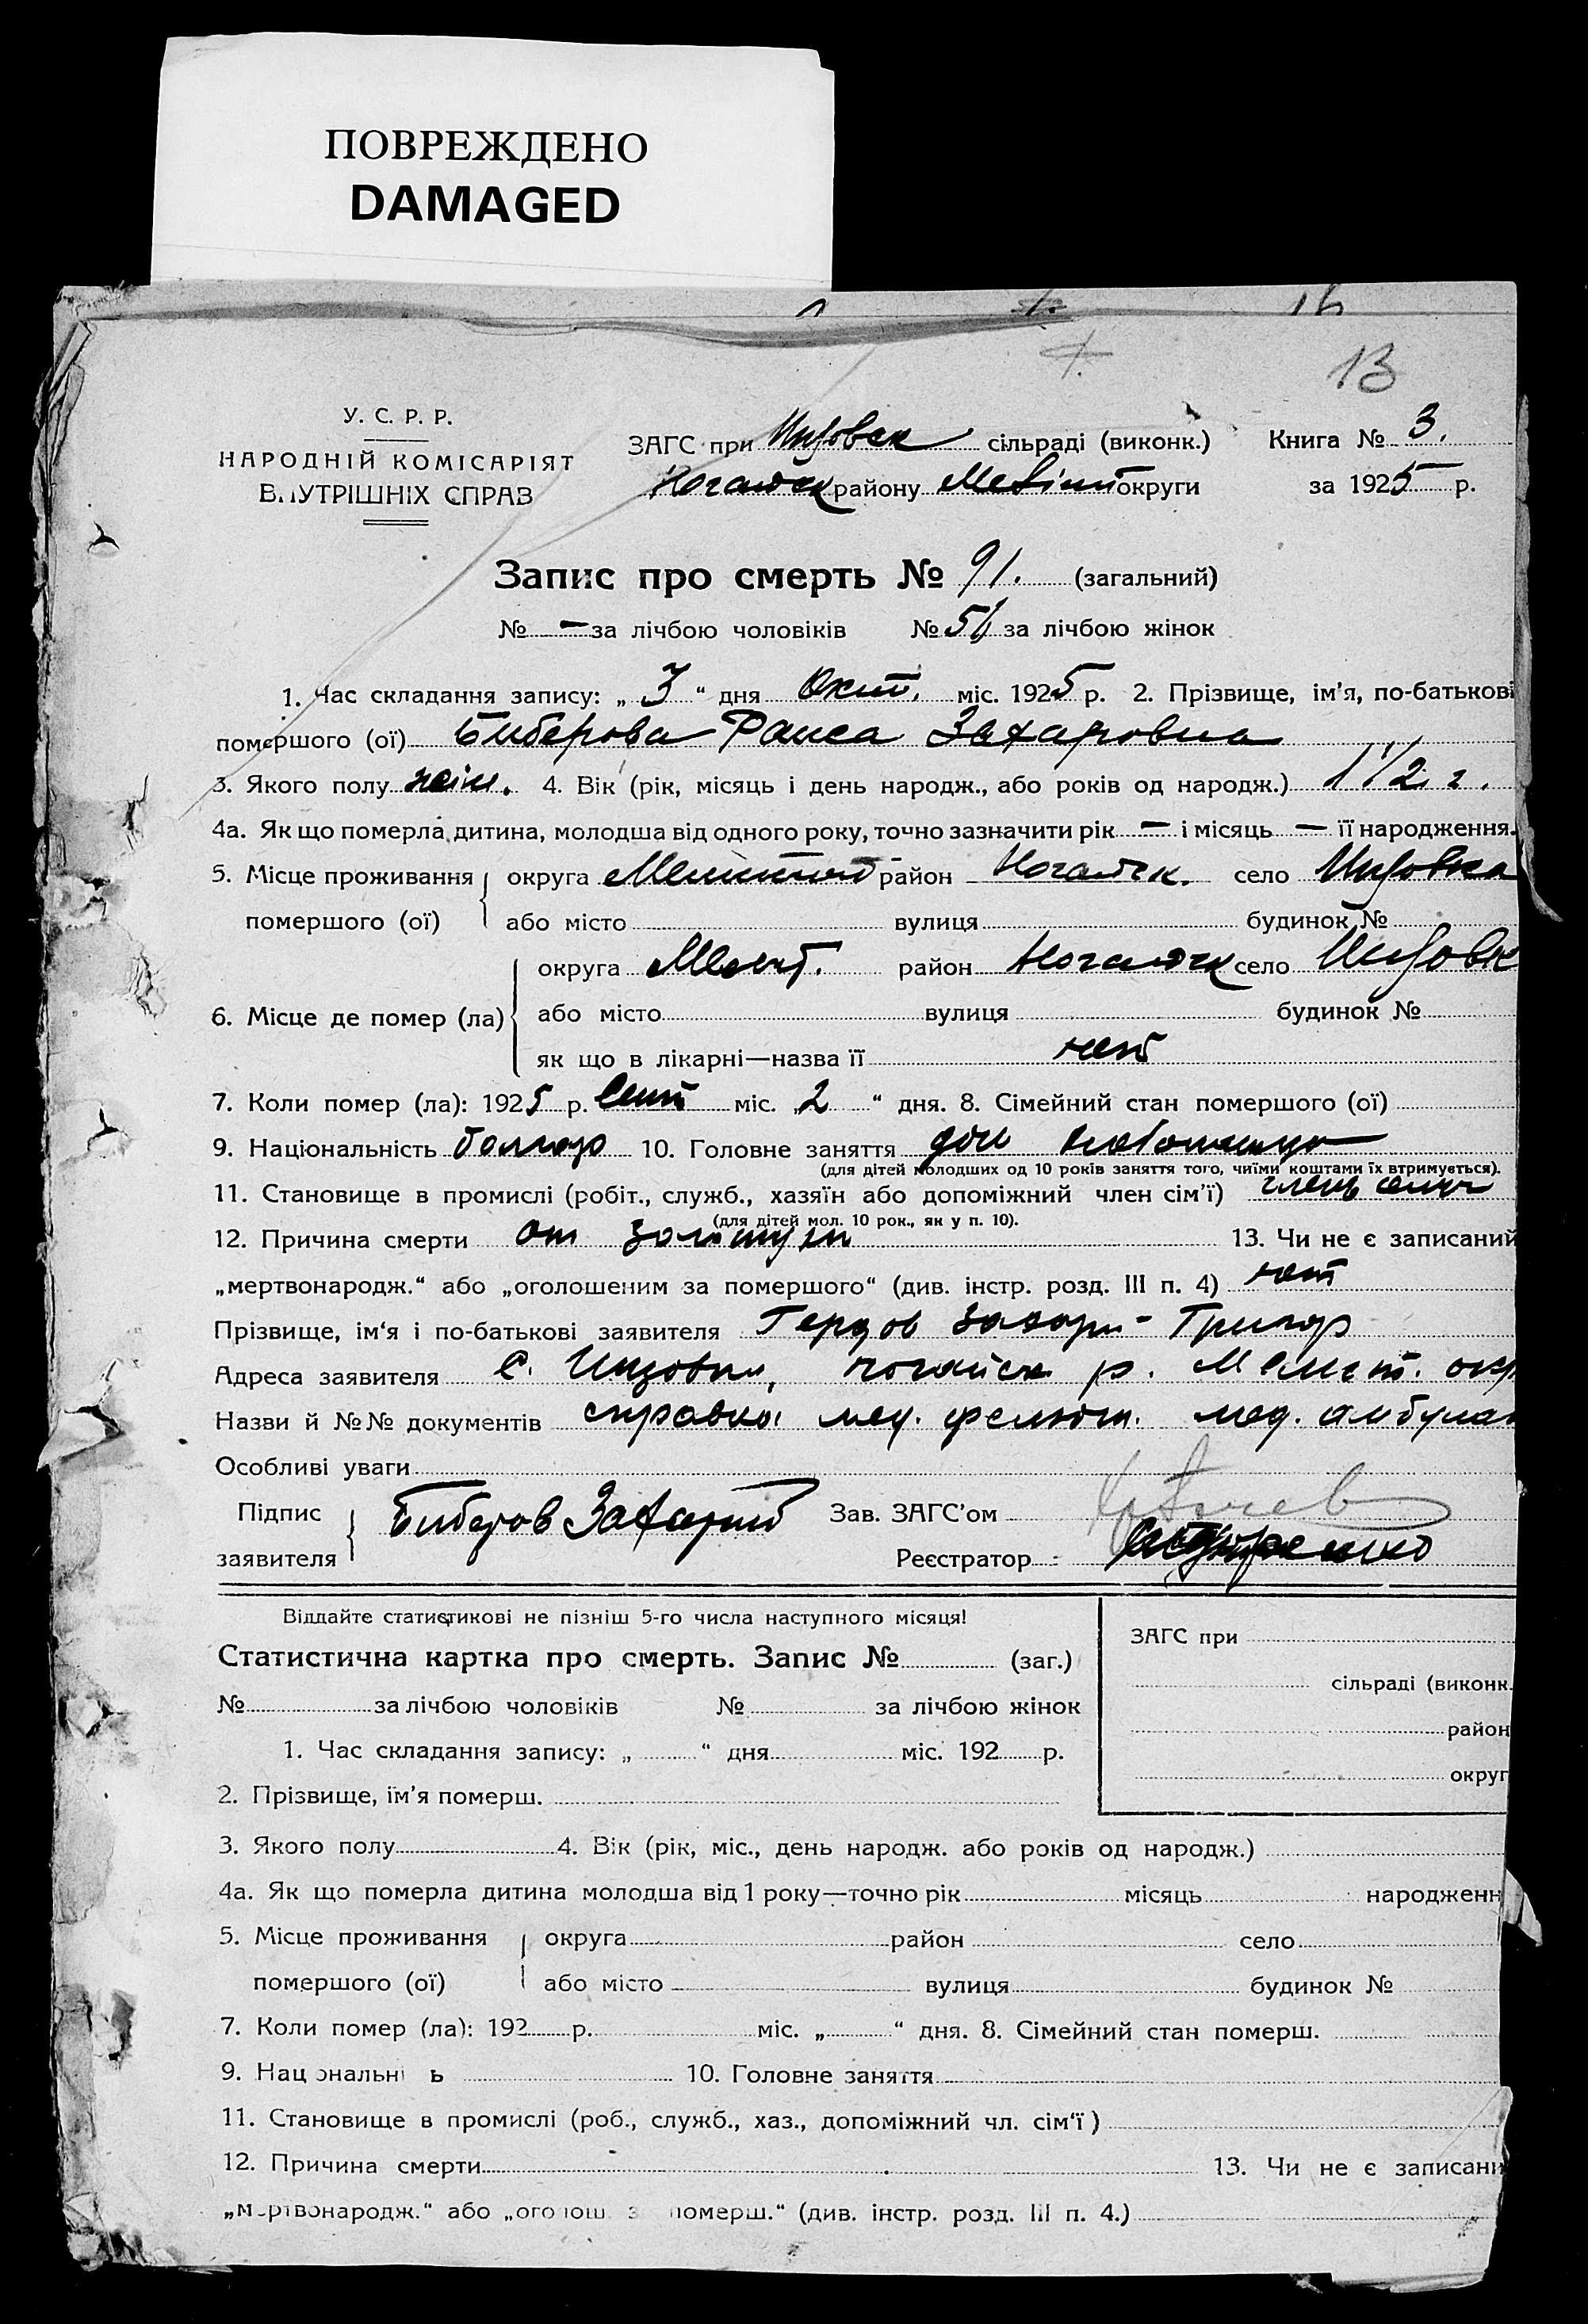 ПОВРЕЖДЕНО
DAMAGED
13
У. С. Р. Р.
НАРОДНІЙ КОМІСАРІЯТ
ВНУТРІШНІХ СПРАВ
ЗАГС при Инзовск сільраді (виконк.) Книга № 3.
Ногайск району Меліт округи за 1925 р.
Запис про смерть № 91. (загальний)
№ — за лічбою чоловіків № 56 за лічбою жінок
1. Час складання запису: „ 3 “ дня Окт. міс. 1925 р. 2. Прізвище, ім’я, по-батькові
помершого (ої) Биберова Раиса Захаровна
3. Якого полу жін. 4. Вік (рік, місяць і день народж., або років од народж.) 1 1/2 г.
4а. Як що померла дитина, молодша від одного року, точно зазначити рік — і місяць — її народження.
5. Місце проживання округа район Ногайск. село Инзовка
помершого (ої) або місто вулиця будинок №
округа Мелит. район Ногайск село Инзовк
6. Місце де помер (ла) або місто вулиця будинок №
як що в лікарні—назва її нет
7. Коли помер (ла): 1925 р. Сент міс. „2 “ дня. 8. Сімейний стан помершого (ої)
9. Національність болгар 10. Головне заняття
(для дітей молодших од 10 років заняття того, чиїми коштами їх втримується).
11. Становище в промислі (робіт., служб., хазяїн або допоміжний член сім’ї) член семи
(для дітей мол. 10 рок., як у п. 10).
12. Причина смерти от золотухи 13. Чи не є записаний
„мертвонародж.“ або „оголошеним за помершого“ (див. інстр. розд. III п. 4) нет
Прізвище, ім‘я і по-батькові заявителя Захари- Григор
Адреса заявителя С. Инзовка, ногайск р. Мелит. окр
Назви й №№ документів справка мед. фельдш. мед. амбулат
Особливі уваги
Підпис Биберов Захарий Зав. ЗАГС’ом
заявителя Реєстратор
Віддайте статистикові не пізніш 5-го числа наступного місяця!
Статистична картка про смерть. Запис № (заг.)
№ за лічбою чоловіків № за лічбою жінок
1. Час складання запису: „ “ дня міс. 192 р.
2. Прізвище, ім’я померш.
ЗАГС при
сільраді (виконк.
район
округ
3. Якого полу 4. Вік (рік, міс., день народж. або років од народж.)
4а. Як що померла дитина молодша від 1 року—точно рік місяць народженн
5. Місце проживання округа район село
помершого (ої) або місто вулиця будинок №
7. Коли помер (ла): 192 р. міс. „ “ дня. 8. Сімейний стан померш.
9. Національні ь 10. Головне заняття
11. Становище в промислі (роб., служб., хаз., допоміжний чл. сім‘ї )
12. Причина смерти 13. Чи не є записани
„мертвонародж.“ або „оголош. з померш.“ (див. інстр. розд. III п. 4.)